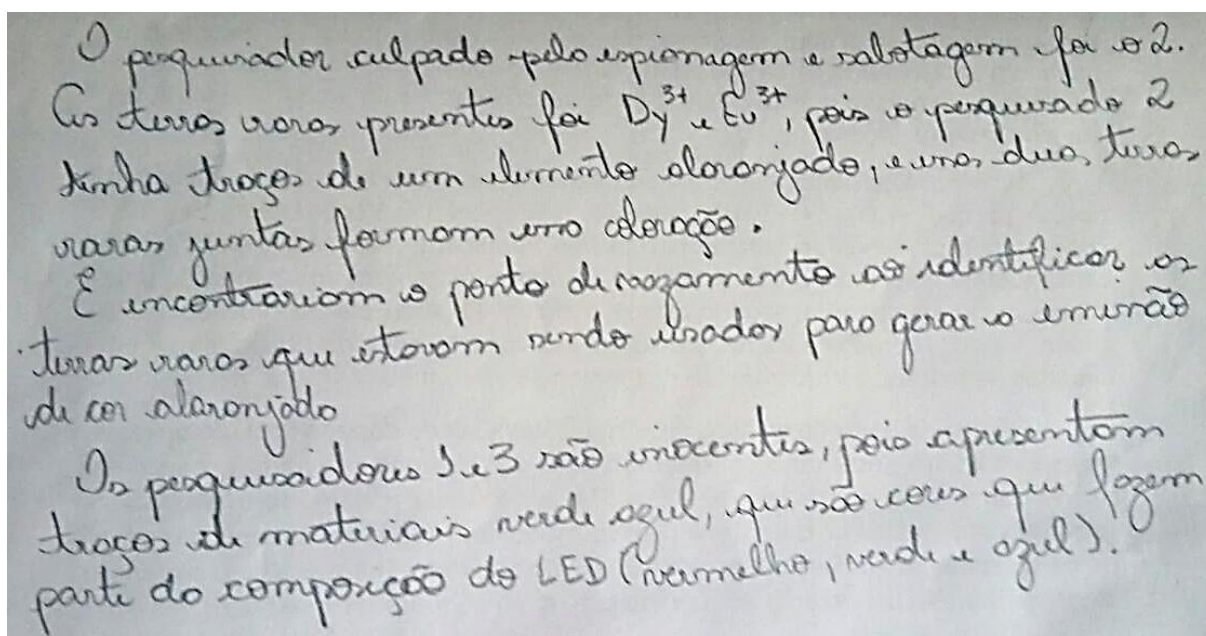 O pesquisador culpado pelo espionagem e sabotagem foi o 2.
As terras raras presentes foi Dy³⁺ e Eu³⁺, pois o pesquisado 2
tinha traços de um elemento alaranjado, e uras duas terras
raras juntas formam erro coloração.
E encontrariam o ponto de vazamento ao identificar os
terras raras que estavam sendo usados para gerar o emissão
de cor alaranjado
Os pesquisadores 1 e 3 são inocentes, pois apresentam
traços de materiais verde azul, que são cores que fazem
parte do composição do LED (vermelho, verde e azul).